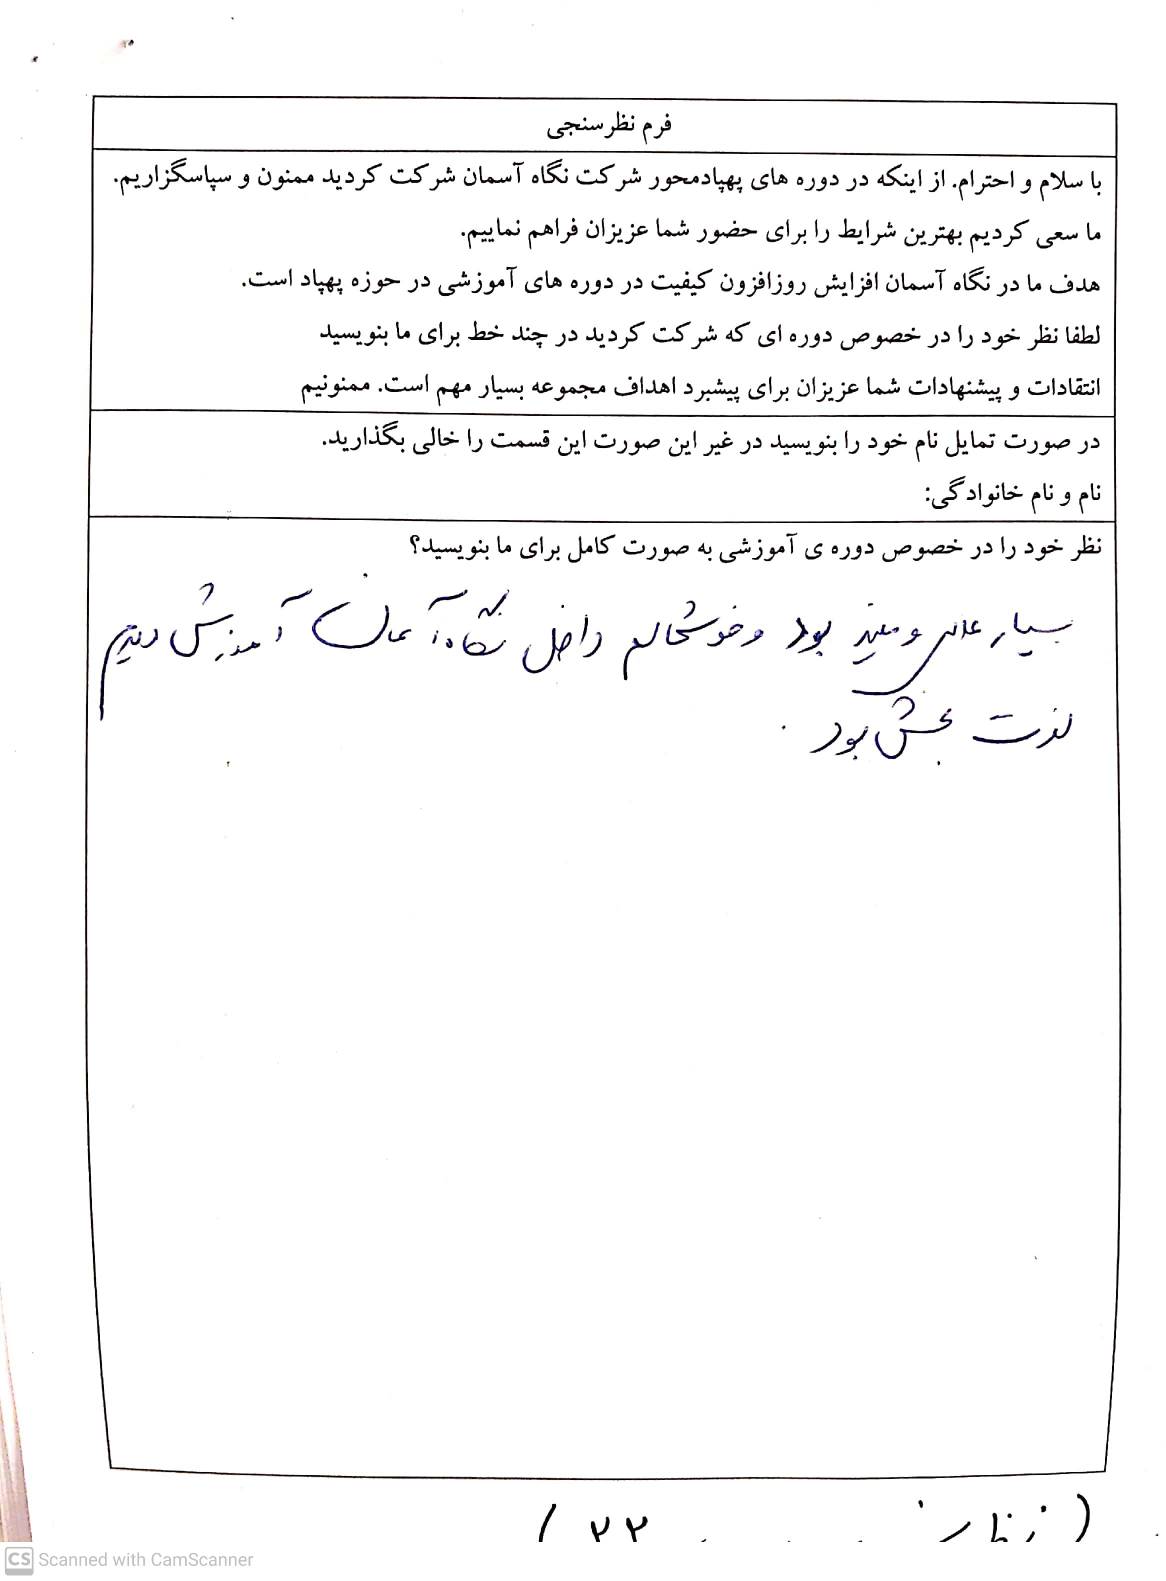 فرم نظرسنجی
با سلام و احترام. از اینکه در دوره های پهپادمحور شرکت نگاه آسمان شرکت کردید ممنون و سپاسگزاریم.
ما سعی کردیم بهترین شرایط را برای حضور شما عزیزان فراهم نماییم.
هدف ما در نگاه آسمان افزایش روزافزون کیفیت در دوره های آموزشی در حوزه پهپاد است.
لطفا نظر خود را در خصوص دوره ای که شرکت کردید در چند خط برای ما بنویسید
انتقادات و پیشنهادات شما عزیزان برای پیشبرد اهداف مجموعه بسیار مهم است. ممنونیم
در صورت تمایل نام خود را بنویسید در غیر این صورت این قسمت را خالی بگذارید.
نام و نام خانوادگی:
نظر خود را در خصوص دوره ی آموزشی به صورت کامل برای ما بنویسید؟
بسیار عالی و مفید بود و خوشحالم داخل نگاه آسمان آموزش دیدیم
لذت بخش بود.
۲۲
CS Scanned with CamScanner